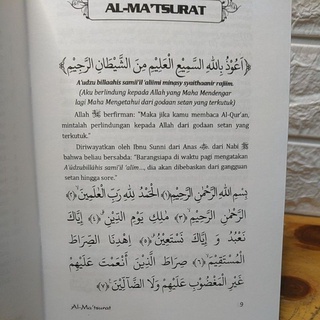 AL-MA'TSURAT
﴿أَعُوْذُ بِاللّٰهِ السَّمِيْعِ الْعَلِيْمِ مِنَ الشَّيْطَانِ الرَّجِيْمِ﴾
A'udzu billaahis samii'il 'aliimi minasy syaithaanir rajiim.
(Aku berlindung kepada Allah yang Maha Mendengar
lagi Maha Mengetahui dari godaan setan yang terkutuk)
Allah ﷻ berfirman: "Maka jika kamu membaca Al-Qur'an,
mintalah perlindungan kepada Allah dari godaan setan yang
terkutuk."
Diriwayatkan oleh Ibnu Sunni dari Anas dari Nabi ﷺ
beliau bersabda: "Barangsiapa di waktu pagi mengatakan
A'ûdzubillâhis samii'il 'aliim..., dia akan dibebaskan dari gangguan
setan hingga sore."
بِسْمِ اللّٰهِ الرَّحْمٰنِ الرَّحِيْمِ﴿١﴾ اَلْحَمْدُ لِلّٰهِ رَبِّ الْعٰلَمِيْنَ﴿٢﴾
الرَّحْمٰنِ الرَّحِيْمِ﴿٣﴾ مٰلِكِ يَوْمِ الدِّيْنِ﴿٤﴾ إِيَّاكَ
نَعْبُدُ وَ إِيَّاكَ نَسْتَعِيْنُ﴿٥﴾ اِهْدِنَا الصِّرَاطَ
الْمُسْتَقِيْمَ﴿٦﴾ صِرَاطَ الَّذِيْنَ أَنْعَمْتَ عَلَيْهِمْ
غَيْرِ الْمَغْضُوْبِ عَلَيْهِمْ وَلَا الضَّآلِّيْنَ﴿٧﴾
Al-Ma'tsurat
9